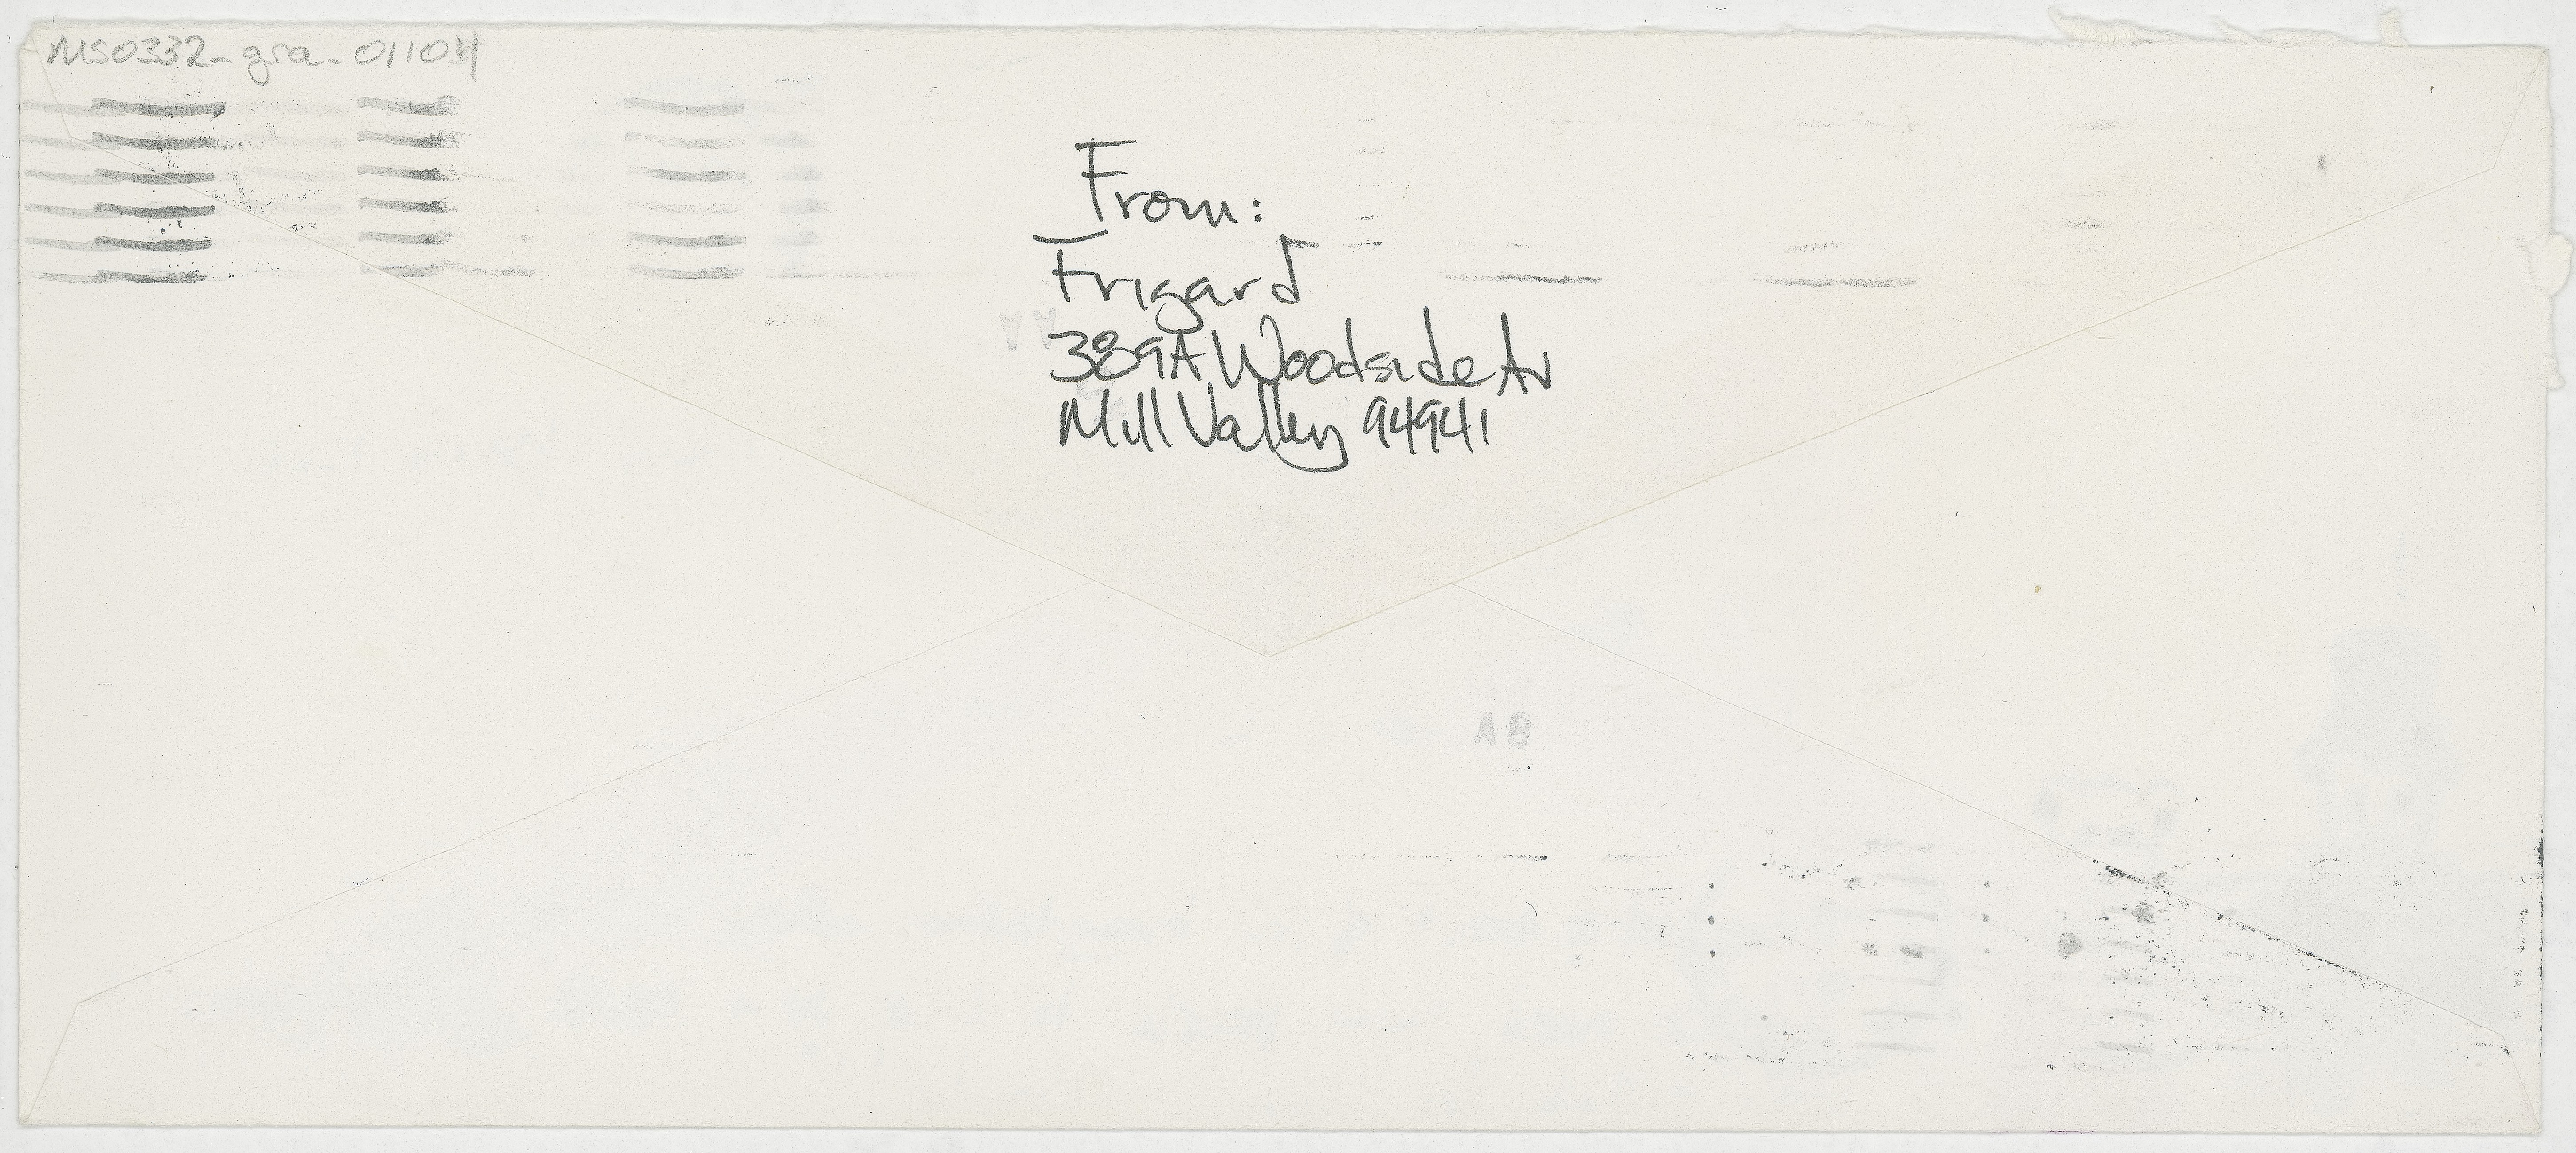 MS0332_gra_01104
From:
Frigard
389A Woodside Av
Mill Valley 94941
8A